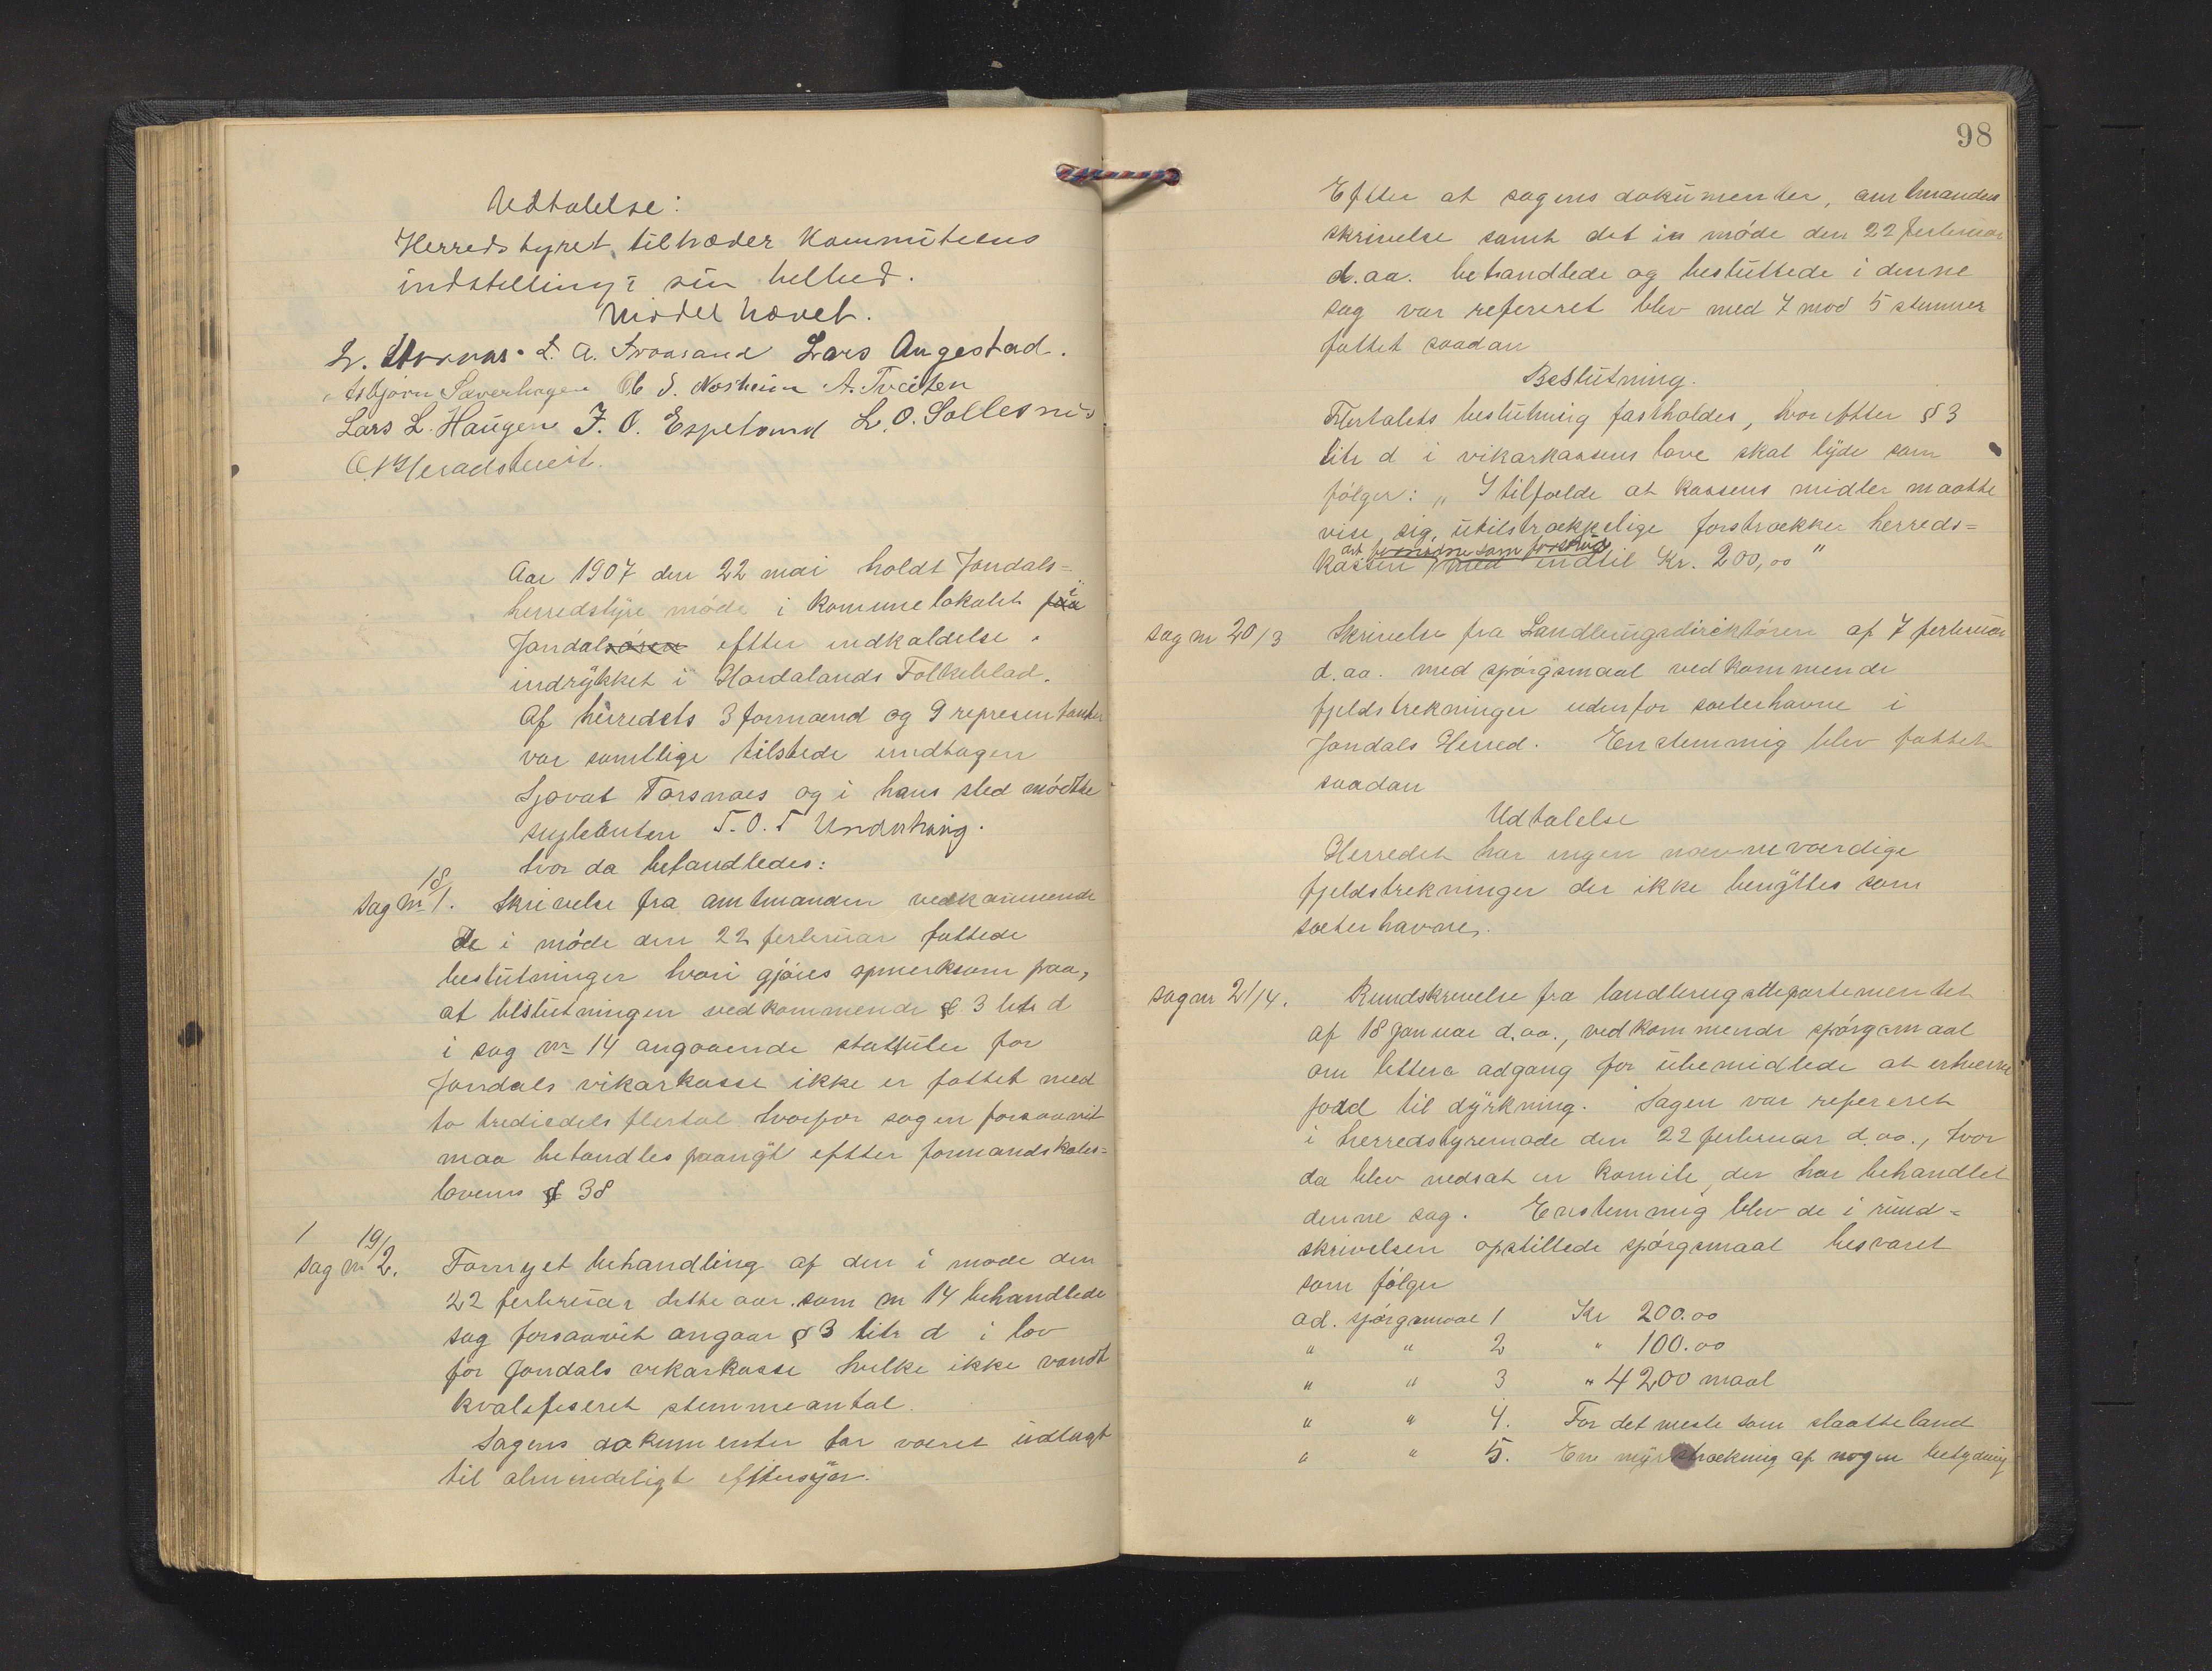 Udtalelse:
Herredstyret tiltræder Kommiteens
indstilling i sin helhed.
Mødet hævet.
L. A. Traasand Lars Augestad.
Asbjørn Sæverhagen S. Nosheim A. Tveiten
Lars L. Haugen J. O. Espeland L. O. Sollesnes
O. Heradstveit.
Aar 1907 den 22 mai holdt Jondals=
herredstyre møde i kommunelokalet paa i
Jondalsøren efter indkaldelse
indrykket i Hordalands Folkeblad.
Af herredets 3 formænd og 9 representanter
var samtlige tilstede undtagen
Sjovat Torsnæs og i hans sted mødte
supleanten T. O. T Underhaug.
hvor da behandledes:
Sag nr 18/1. Skrivelse fra amtmanden vedkommende
de i møde den 22 februar fattede
beslutninger hvori gjøres opmerksom paa,
at beslutningen vedkommende § 3 litr d
i sag nr 14 angaaende statuter for
Jondals vikarkasse ikke er fattet med
to trediedels flertal hvorfor sagen forsaavit
maa behandles paanyt efter formandskabs=
lovens § 38
1
sag nr 19/2. Fornyet behandling af den i møde den
22 februar dette aar som nr 14 behandlede
sag forsaavit angaar § 3 litr d i lov
for Jondals vikarkasse hvilke ikke vandt
kvalifiseret stemmeantal.
Sagens dokumenter har været udlagt
til almindeligt eftersyn.
98
Efter at sagens dokumenter, amtmandens
skrivelse samt det in møde den 22 februar
d.aa. behandlede og besluttede i denne
sag var refereret blev med 7 mod 5 stemmer
fattet saadan
Beslutning.
Flertalets beslutning fastholdes, hvorefter § 3
litr d i vikarkassens love skal lyde som
følger: „I tilfælde at kassens midler maatte
vise sig utilstrækkelige forstrækker herreds=
det fornødne som forskud
kassen med indtil Kr. 200,00"
sag nr 20/3 Skrivelse fra Landbrugsdirektøren af 7 februar
d.aa. med spørgsmaal vedkommende
fjeldstrekninger udenfor sæterhavne i
Jondals Herred. Enstemmig blev fattet
saadan
Udtalelse
Herredet har ingen nævneværdige
fjeldstrekninger der ikke benyttes som
sæterhavne.
sag nr 21/4. Rundskrivelse fra landbrugsdepartementet
af 18 januar d.aa., vedkommende spørgsmaal
om lettere adgang for ubemidlede at erhverve
jord til dyrkning. Sagen var refereret
i herredstyremøde den 22 februar d.aa., hvor
da blev nedsat en komite, der har behandlet
denne sag. Enstemmig blev de i rund=
skrivelsen opstillede spørgsmaal besvaret
som følger
ad. spørgsmaal 1 Kr 200.00
" " 2 " 100.00
" " 3 " 4200 maal
" " 4. For det meste som slaatteland
" " 5. En myrstrækning af nogen betydning